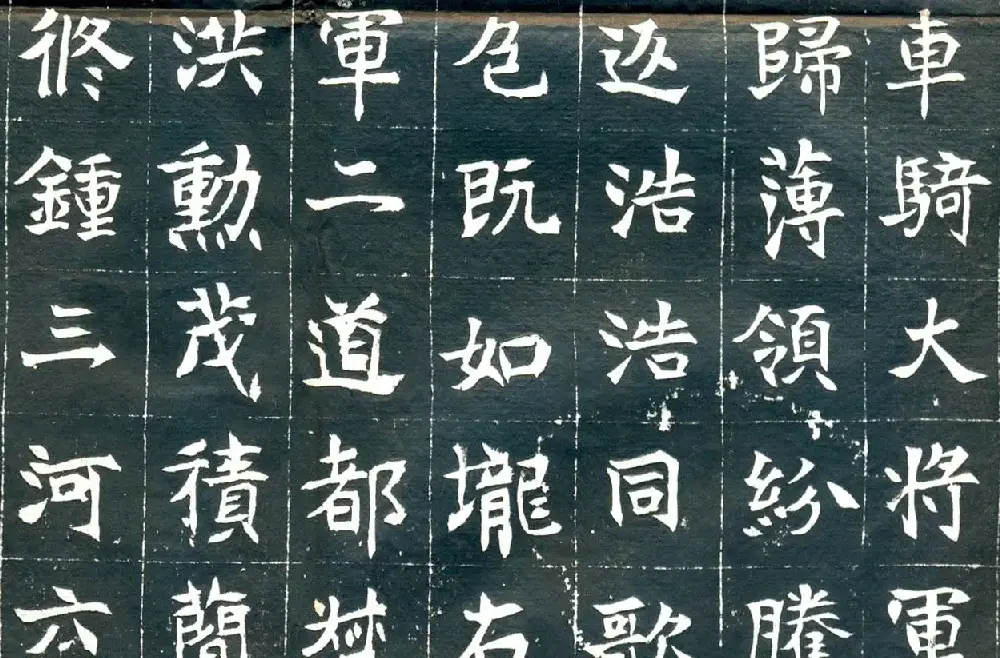 車騎大将軍
歸薄領紛騰
返浩浩同歌
色既如壠右
軍二道都
洪勳茂積簡
修鍾三河六